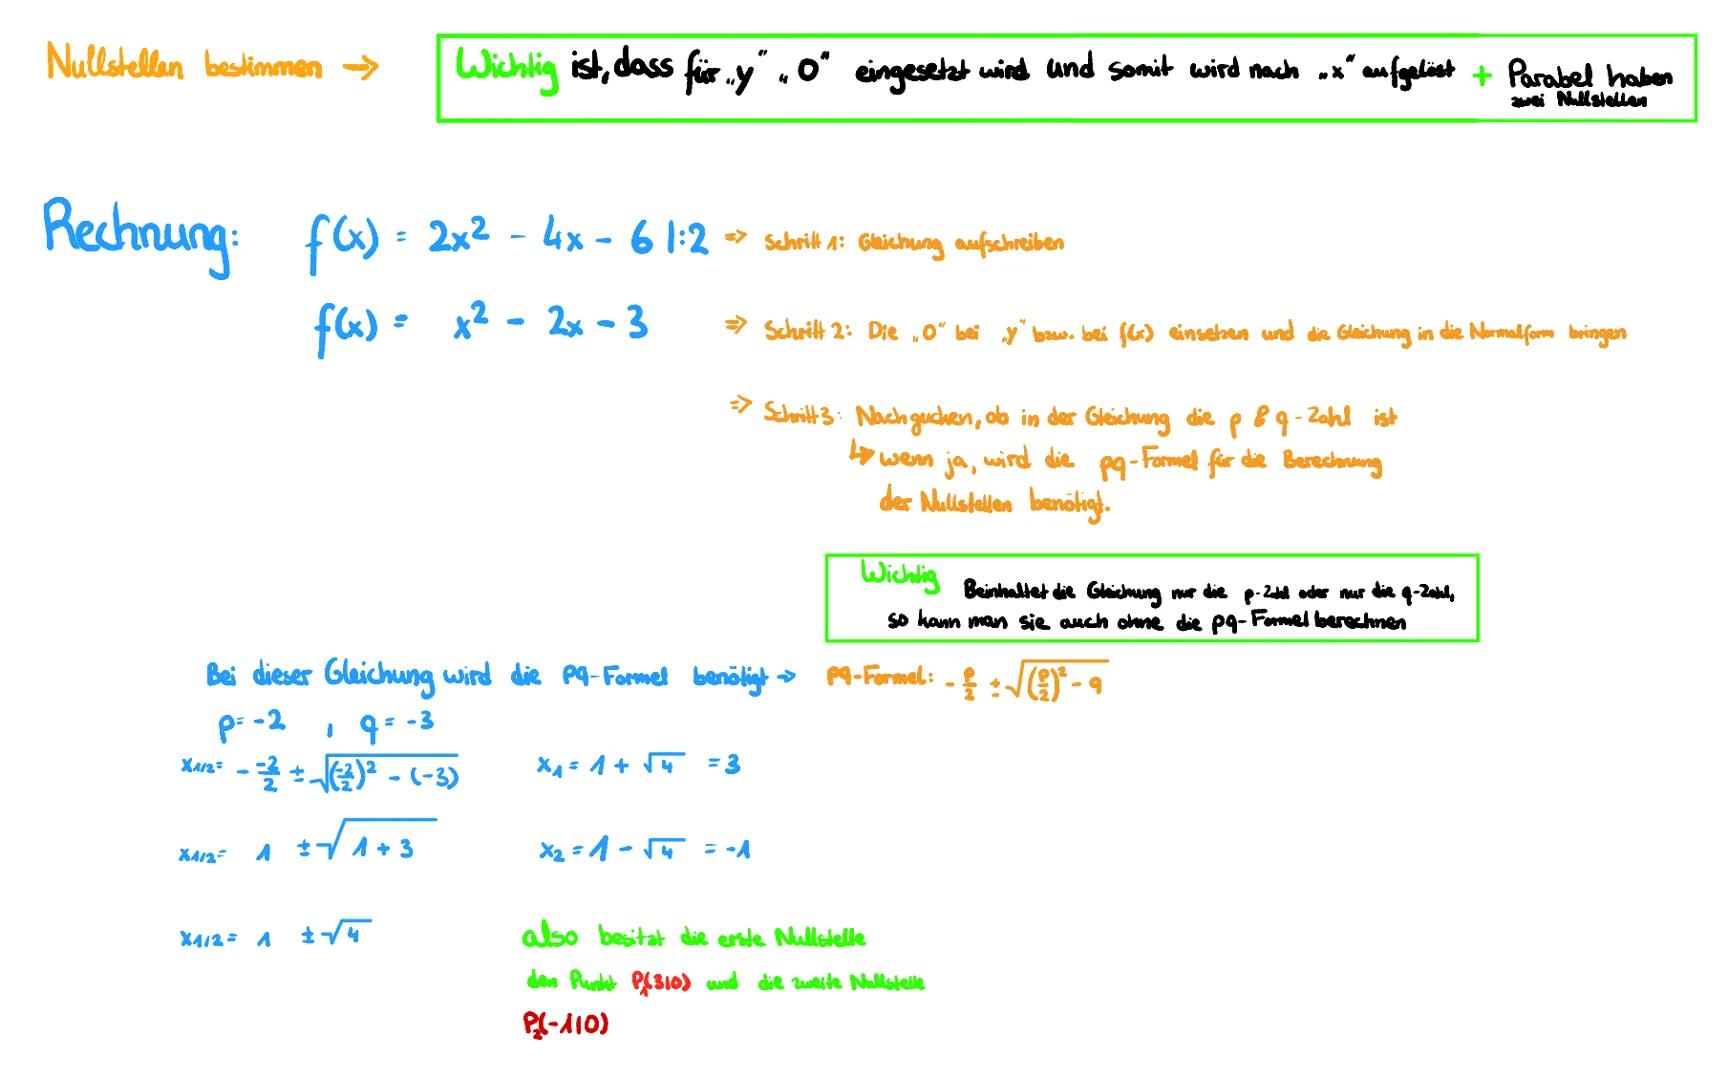 Nullstellen bestimmen →
Wichtig ist, dass für „y" „0" eingesetzt wird und somit wird nach „x" aufgelöst + Parabel haben
zwei Nullstellen
Rechnung: f(x) = 2x² - 4x - 6 |:2 => Schritt 1: Gleichung aufschreiben
f(x) = x² - 2x - 3 => Schritt 2: Die „0" bei „y" bzw. bei f(x) einsetzen und die Gleichung in die Normalform bringen
=> Schritt 3: Nachgucken, ob in der Gleichung die p & q-Zahl ist
↳ wenn ja, wird die pq-Formel für die Berechnung
der Nullstellen benötigt.
Wichtig Beinhaltet die Gleichung nur die p-Zahl oder nur die q-Zahl,
so kann man sie auch ohne die pq-Formel berechnen
Bei dieser Gleichung wird die pq-Formel benötigt → pq-Formel: -p/2 ± √((p/2)² - q)
p = -2 , q = -3
x1/2 = - -2/2 ± √((-2/2)² - (-3))
x1 = 1 + √4 = 3
x1/2 = 1 ± √(1 + 3)
x2 = 1 - √4 = -1
x1/2 = 1 ± √4
also besitzt die erste Nullstelle
den Punkt P1(3|0) und die zweite Nullstelle
P2(-1|0)